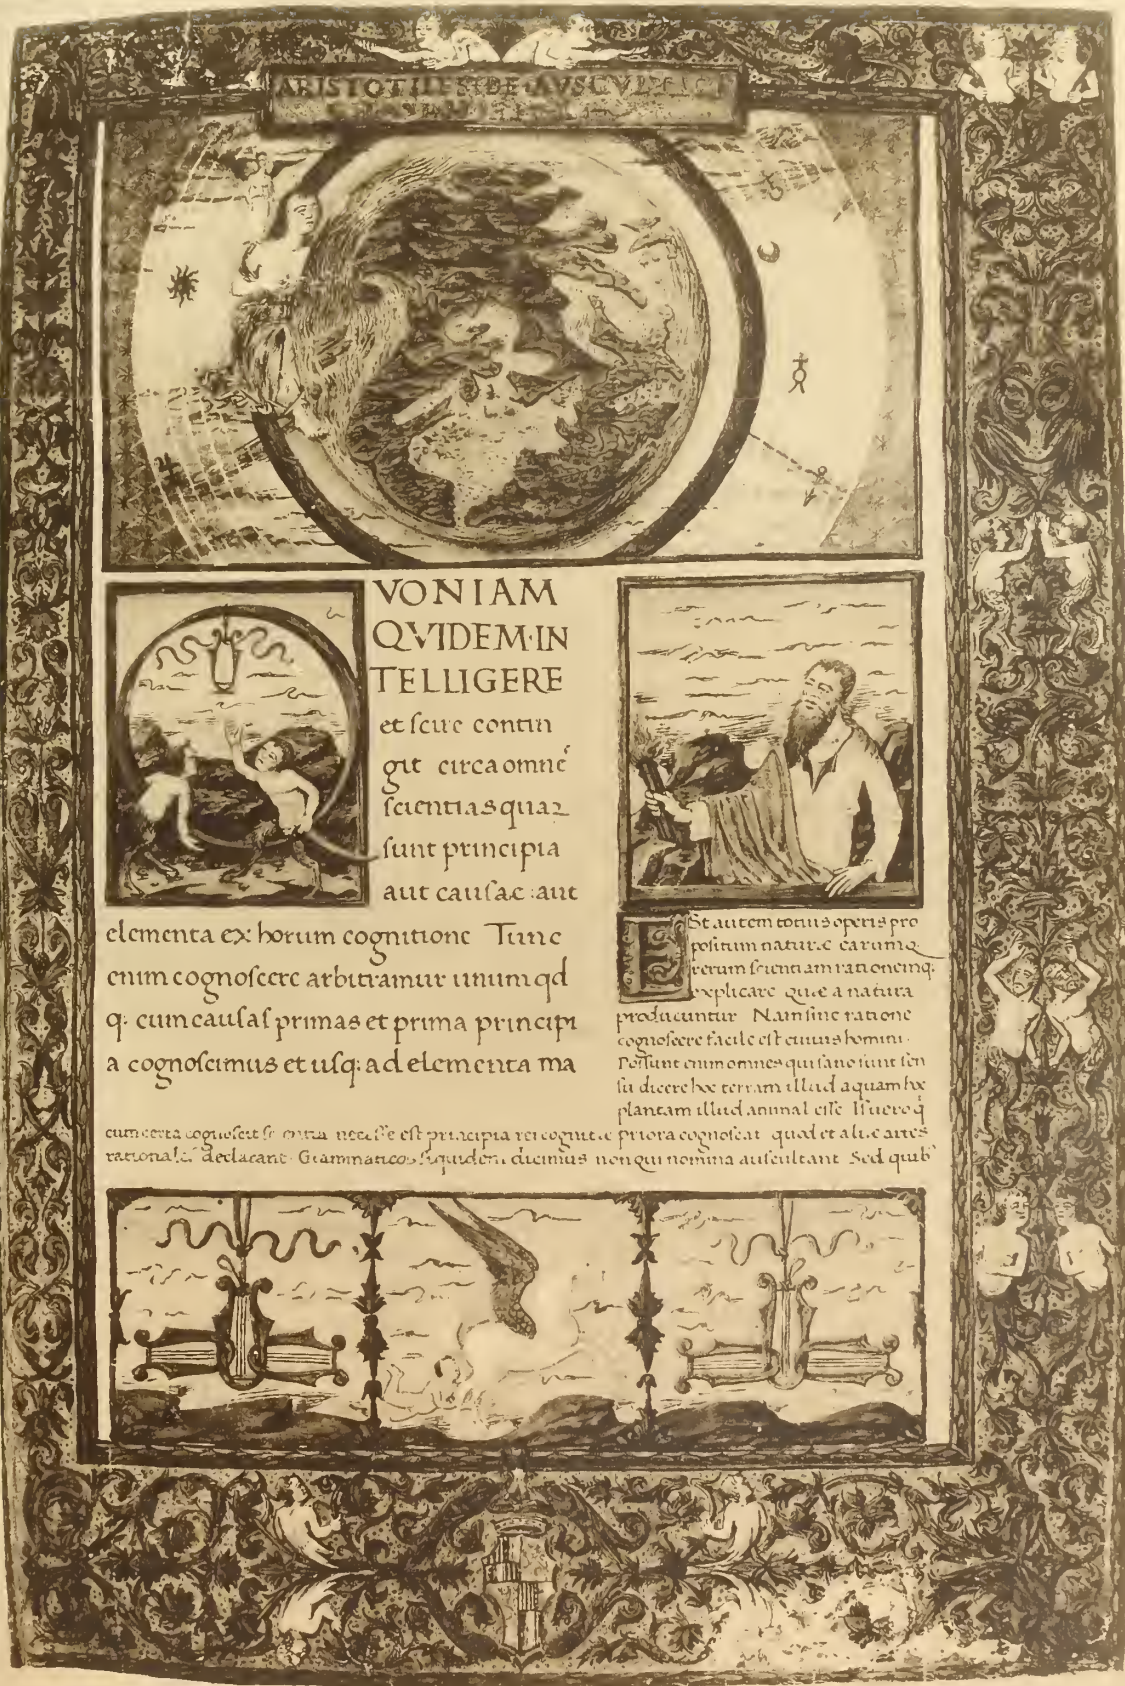 ARISTOTILES·DE·AVSCVLTACI
VONIAM
QVIDEM·IN
TELLIGERE
et ſcire contin
git circa omnē
ſcientias quaꝝ
ſunt principia
aut cauſae : aut
elementa ex horum cognitione Tunc
enim cognoſcere arbitramur unum qd
q: cum cauſaſ primas et prima principi
a cognoſcimus et uſq: ad elementa ma
ESt autem totius operis pro
poſitum naturæ earumq.
rerum ſcientiam rationemq.
explicare Quæ a natura
producuntur Nam ſine ratione
cognoſcere facile eſt cuiuis homini.
Poſſunt enim omnes qui ſano ſunt ſen
ſu dicere hæc terram illud aquam hæc
plantam illud animal eſſe Iſ uero q
cum certa cognoſcit neceſſe eſt principia rei cognitæ priora cognoſcat quod et aliæ artes
declarant Grammaticos ſiquidem dicimus non qui nomina auſcultant Sed quib